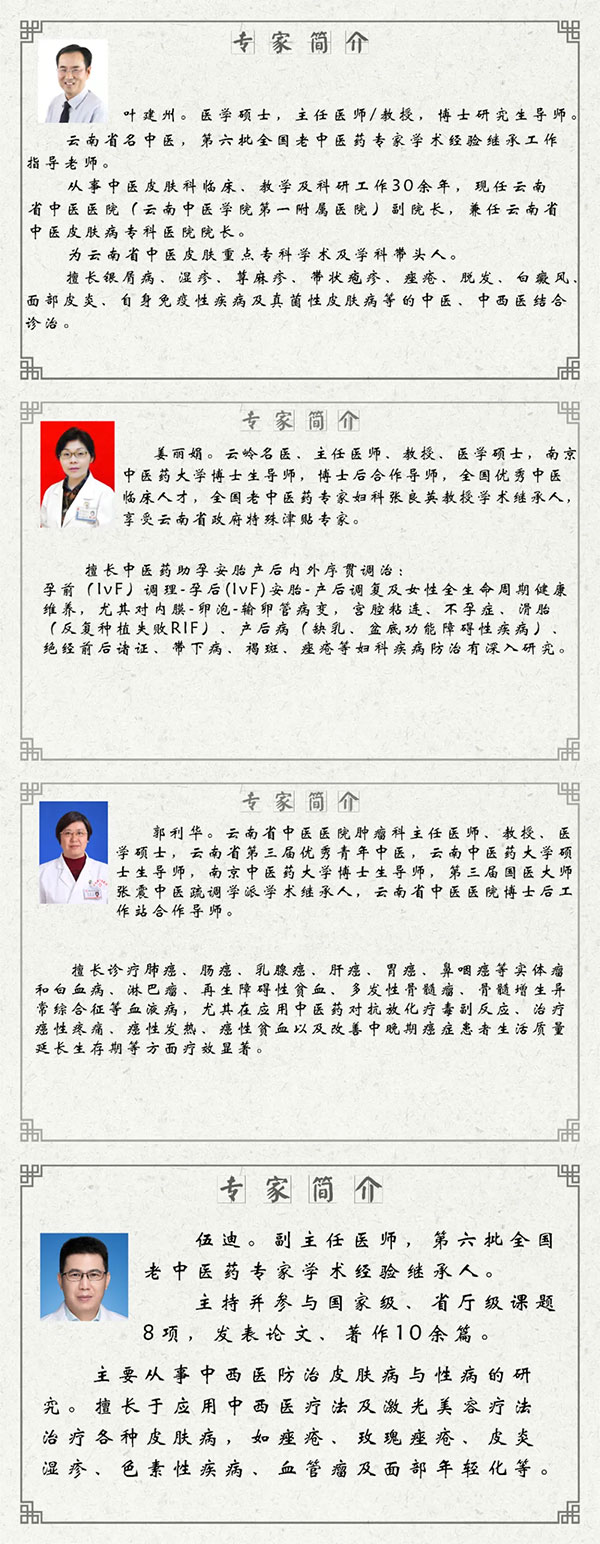 专家简介
叶建州。医学硕士，主任医师/教授，博士研究生导师。
云南省名中医，第六批全国老中医药专家学术经验继承工作
指导老师。
从事中医皮肤科临床、教学及科研工作30余年，现任云南
省中医医院（云南中医学院第一附属医院）副院长，兼任云南省
中医皮肤病专科医院院长。
为云南省中医皮肤重点专科学术及学科带头人。
擅长银屑病、湿疹、荨麻疹、带状疱疹、痤疮、脱发、白癜风、
面部皮炎、自身免疫性疾病及真菌性皮肤病等的中医、中西医结合
诊治。
专家简介
姜丽娟。云岭名医、主任医师、教授、医学硕士，南京
中医药大学博士生导师，博士后合作导师，全国优秀中医
临床人才，全国老中医药专家妇科张良英教授学术继承人，
享受云南省政府特殊津贴专家。
擅长中医药助孕安胎产后内外序贯调治：
孕前（IvF）调理-孕后(IvF)安胎-产后调复及女性全生命周期健康
维养，尤其对内膜-卵泡-输卵管病变，宫腔粘连、不孕症、滑胎
（反复种植失败RIF）、产后病（缺乳、盆底功能障碍性疾病）、
绝经前后诸证、带下病、褐斑、痤疮等妇科疾病防治有深入研究。
专家简介
郭利华。云南省中医医院肿瘤科主任医师、教授、医
学硕士，云南省第三届优秀青年中医，云南中医药大学硕
士生导师，南京中医药大学博士生导师，第三届国医大师
张震中医疏调学派学术继承人，云南省中医医院博士后工
作站合作导师。
擅长诊疗肺癌、肠癌、乳腺癌、肝癌、胃癌、鼻咽癌等实体瘤
和白血病、淋巴瘤、再生障碍性贫血、多发性骨髓瘤、骨髓增生异
常综合征等血液病，尤其在应用中医药对抗放化疗毒副反应、治疗
癌性疼痛、癌性发热、癌性贫血以及改善中晚期癌症患者生活质量
延长生存期等方面疗效显著。
专家简介
伍迪。副主任医师，第六批全国
老中医药专家学术经验继承人。
主持并参与国家级、省厅级课题
8项，发表论文、著作10余篇。
主要从事中西医防治皮肤病与性病的研
究。擅长于应用中西医疗法及激光美容疗法
治疗各种皮肤病，如痤疮、玫瑰痤疮、皮炎
湿疹、色素性疾病、血管瘤及面部年轻化等。